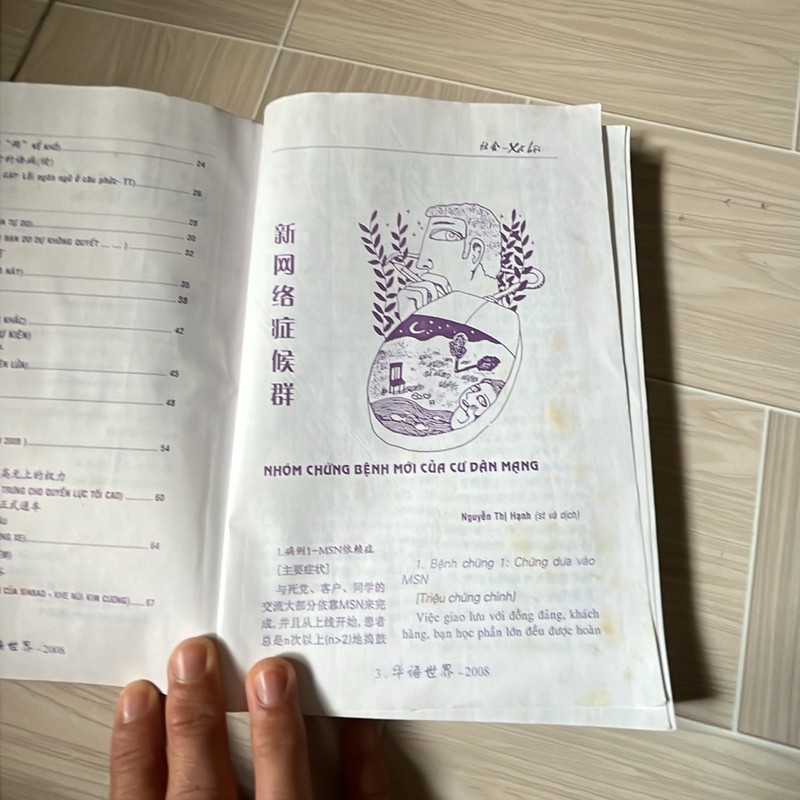 24
26
28
30
BẠN DO DỰ KHÔNG QUYẾT ... ... ) 32
35
38
KHẮC) 42
45
48
2008 ) 54
高无上的权力
TRƯNG CHO QUYỀN LỰC TỐI CAO) 60
正式通车
64
CỦA SINBAD - KHE NÚI KIM CƯƠNG) 67
世界 - 2008
社会 - Xã hội
新网络症候群
NHÓM CHỨNG BỆNH MỚI CỦA CƯ DÂN MẠNG
Nguyễn Thị Hạnh (st và dịch)
1.病例1-MSN依赖症
[主要症状]
与死党、客户、同学的
交流大部分依靠MSN来完
成, 并且从上线开始, 患者
总是n次以上(n>2)地捣鼓
1. Bệnh chứng 1: Chứng dựa vào
MSN
[Triệu chứng chính]
Việc giao lưu với đồng đảng, khách
hàng, bạn học phần lớn đều được hoàn
3. 华语世界 - 2008